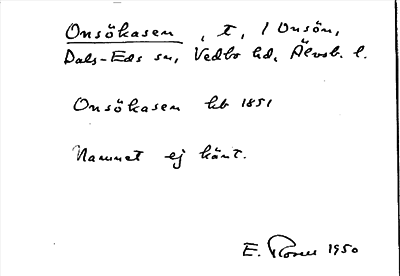 Onsökasen, t, / Onsön,
Dals-Eds sn, Vedbo hd, Älvsb. l.
Onsökasen hb 1851
Namnet ej känt.
E. 1950